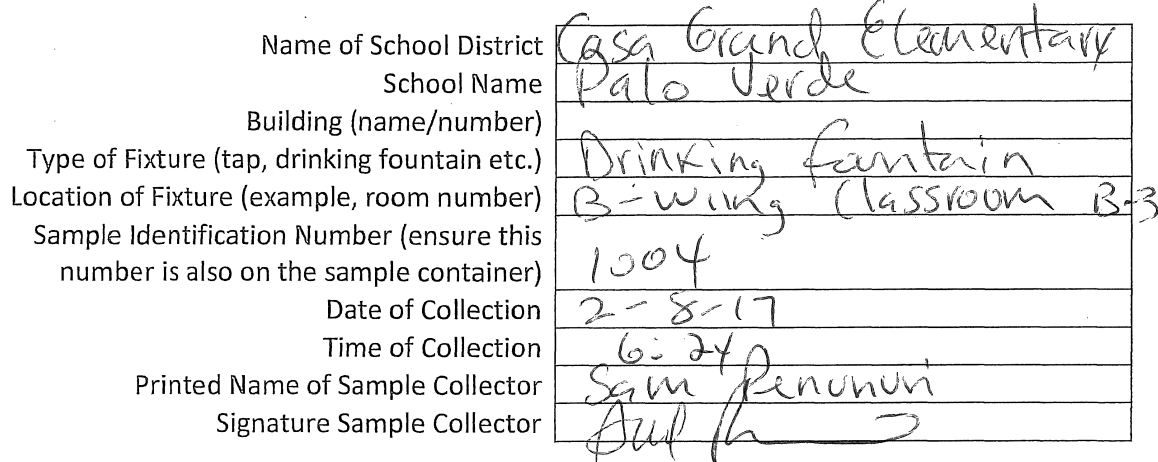 Name of School District Casa Grand Elementary
School Name Palo Verde
Building (name/number)
Type of Fixture (tap, drinking fountain etc.) Drinking fountain
Location of Fixture (example, room number) B-wing Classroom B-3
Sample Identification Number (ensure this
number is also on the sample container) 1004
Date of Collection 2-8-17
Time of Collection 6:24
Printed Name of Sample Collector Sam Penunuri
Signature Sample Collector